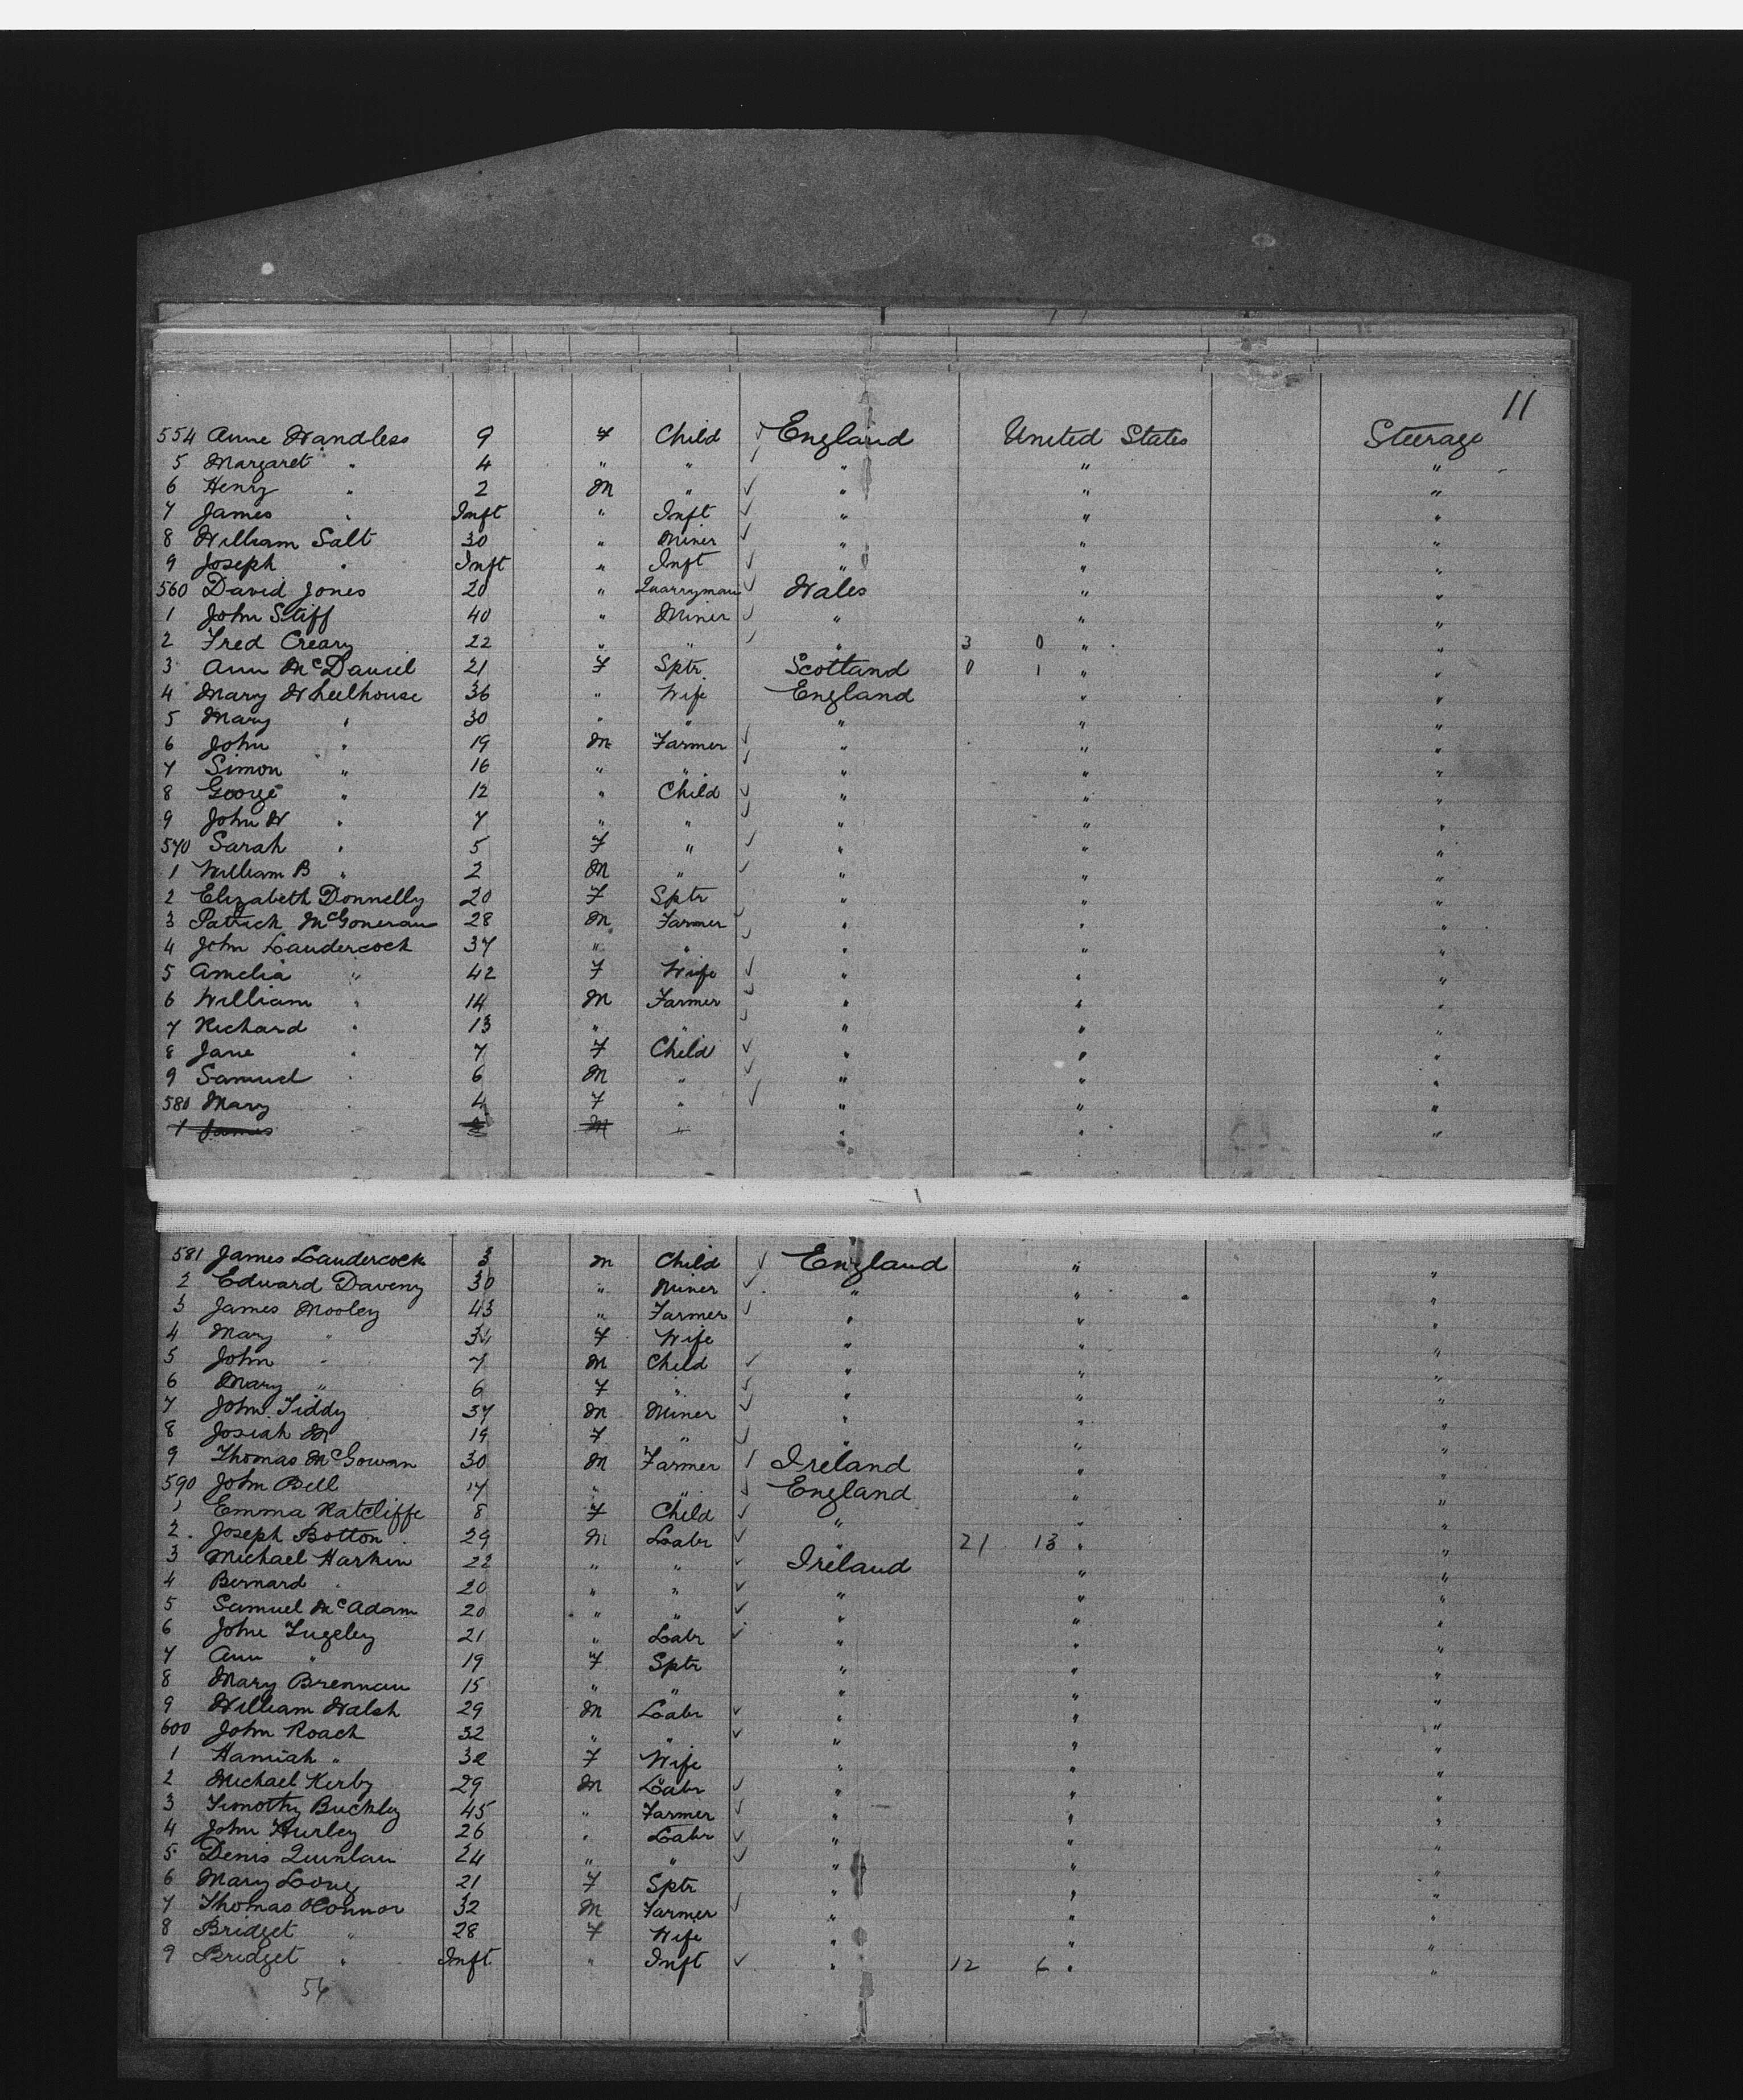 11
554 Anne Wandless 9 F Child ✓ England United States Steerage
5 Margaret " 4 " " ✓ " " "
6 Henry " 2 M " ✓ " " "
7 James " Inft " Inft ✓ " " "
8 William Salt 30 " Miner ✓ " " "
9 Joseph " Inft " Inft ✓ " " "
560 David Jones 20 " Quarryman ✓ Wales " "
1 John Stiff 40 " Miner ✓ " " "
2 Fred Creary 22 " " ✓ " 3 0 " "
3 Ann McDaniel 21 F Sptr Scotland 0 1 " "
4 Mary Wheelhouse 36 " Wife England " "
5 Mary " 30 " " " " "
6 John " 19 M Farmer ✓ " " "
7 Simon " 16 " " ✓ " " "
8 George " 12 " Child ✓ " " "
9 John W " 7 " " ✓ " " "
570 Sarah " 5 F " ✓ " " "
1 William B " 2 M " ✓ " " "
2 Elizabeth Donnelly 20 F Sptr " " "
3 Patrick McGoneran 28 M Farmer ✓ " " "
4 John Laudercock 37 " " ✓ " " "
5 Amelia " 42 F Wife ✓ " " "
6 William " 14 M Farmer ✓ " " "
7 Richard " 13 " " ✓ " " "
8 Jane " 7 F Child ✓ " " "
9 Samuel " 6 M " ✓ " " "
580 Mary " 4 F " ✓ " " "
1 James M " " " "
581 James Laudercock 3 M Child ✓ England " "
2 Edward Daveny 30 " Miner ✓ " " "
3 James Mooley 43 " Farmer ✓ " " "
4 Mary " F Wife " " "
5 John " 7 M Child ✓ " " "
6 Mary " 6 F " ✓ " " "
7 John Tiddy 37 M Miner ✓ " " "
8 Josiah M 19 F " ✓ " " "
9 Thomas McGowan 30 M Farmer ✓ Ireland " "
590 John Bell 17 " " ✓ England " "
1 Emma Ratcliffe 8 F Child ✓ " " "
2 Joseph Botton 29 M Labr ✓ " 21 13 " "
3 Michael Harkin 22 " " ✓ Ireland " "
4 Bernard " 20 " " ✓ " " "
5 Samuel McAdam 20 " " ✓ " " "
6 John 21 " Labr ✓ " " "
7 Ann " 19 F Sptr " " "
8 Mary Brennan 15 " " " " "
9 William Walsh 29 M Labr ✓ " " "
600 John Roach 32 " " ✓ " " "
1 Hanniah " 32 F Wife " " "
2 Michael Kerby 29 M Labr ✓ " " "
3 Timothy Buckley 45 " Farmer ✓ " " "
4 John Hurley 26 " Labr ✓ " " "
5 Denis Quinlan 24 " " ✓ " " "
6 Mary Long 21 F Sptr " " "
7 Thomas OConnor 32 M Farmer ✓ " " "
8 Bridget " 28 F Wife " " "
9 Bridget " Inft " Inft ✓ " 12 6 " "
56